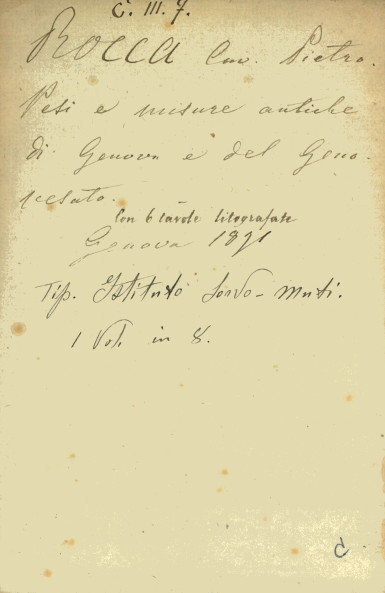 C. III. 7.
ROCCA Cav. Pietro.
Pesi e misure antiche
di Genova e del Geno-
vesato.
Con 6 tavole litografate
Genova 1871
Tip. Istituto Sordo-Muti.
1 Vol. in 8.
C